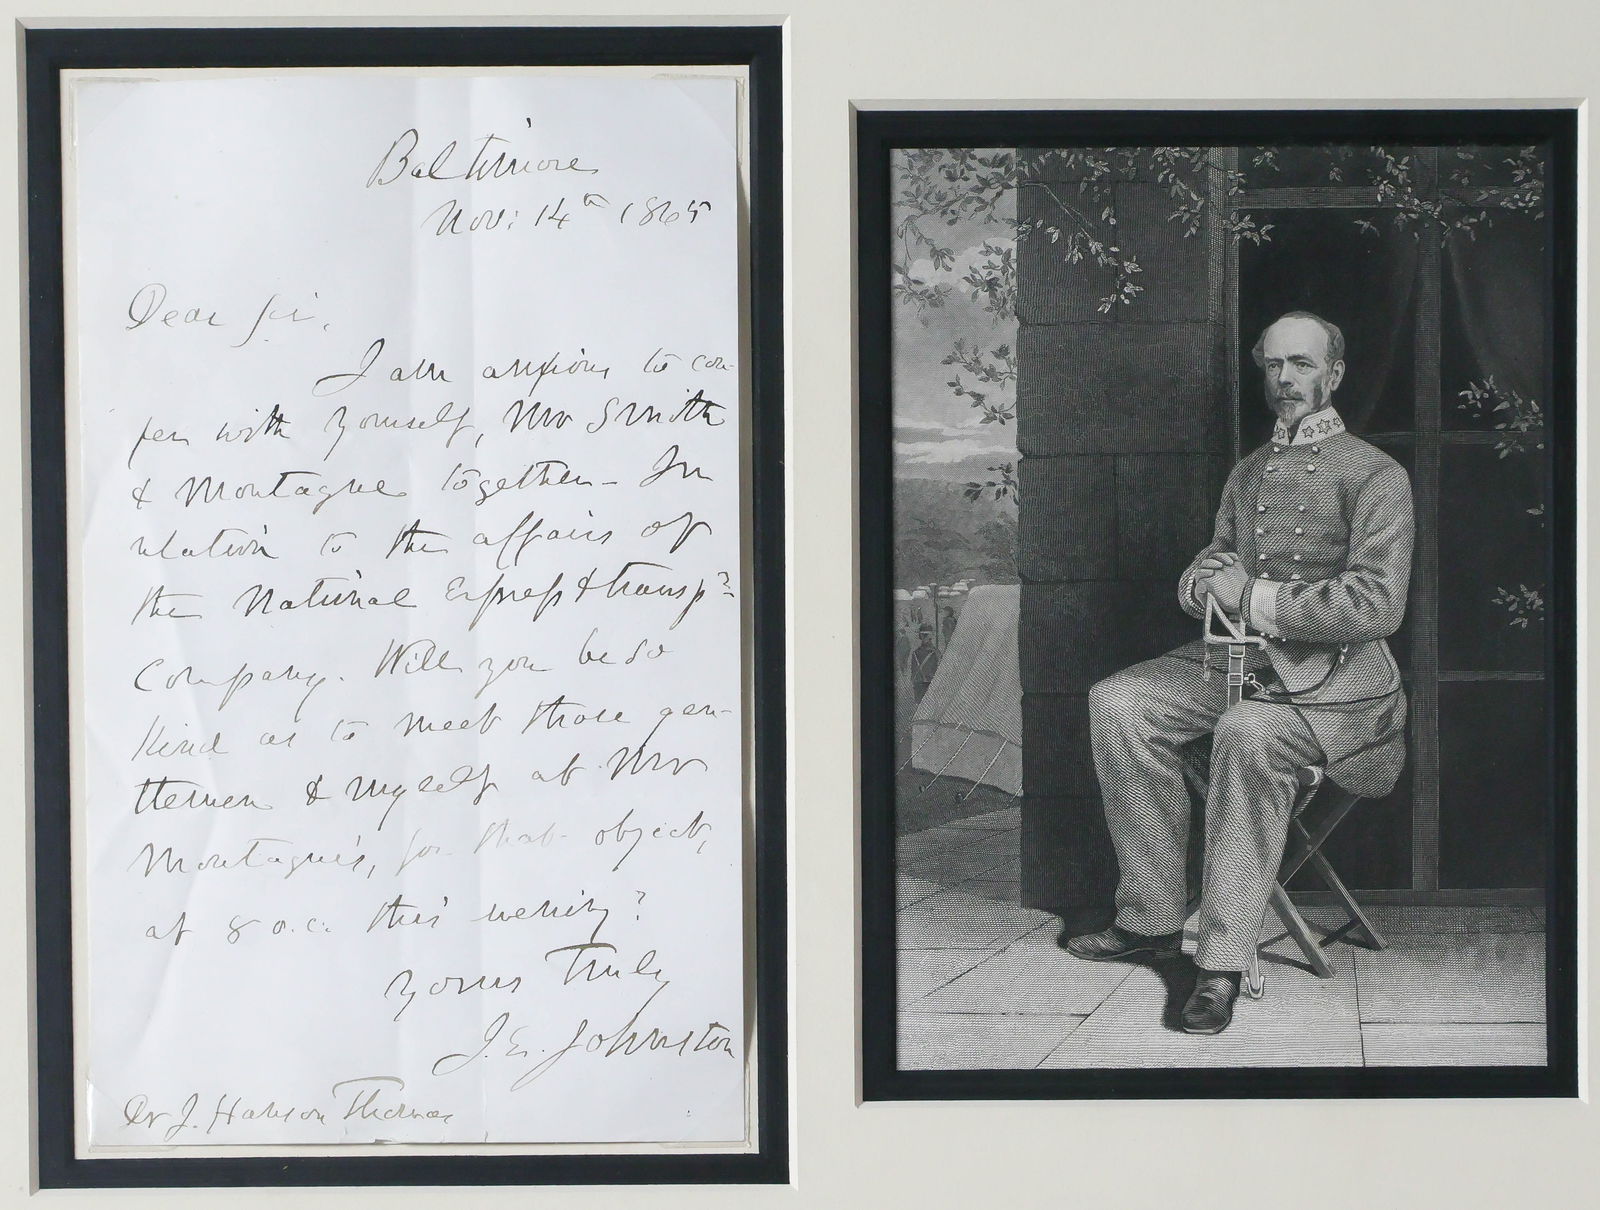 Baltimore
Nov: 14th 1865
Dear Sir,
I am anxious to con-
fer with yourself, Mr Smith
& Montague together - In
relation to the affairs of
the National Express & transpn
Company. Will you be so
kind as to meet those gen-
tlemen & myself at Mr
Montague's, for that object,
at 8 o.c. this evening?
Yours Truly
J. E. Johnston
Dr J. Hanson Thomas